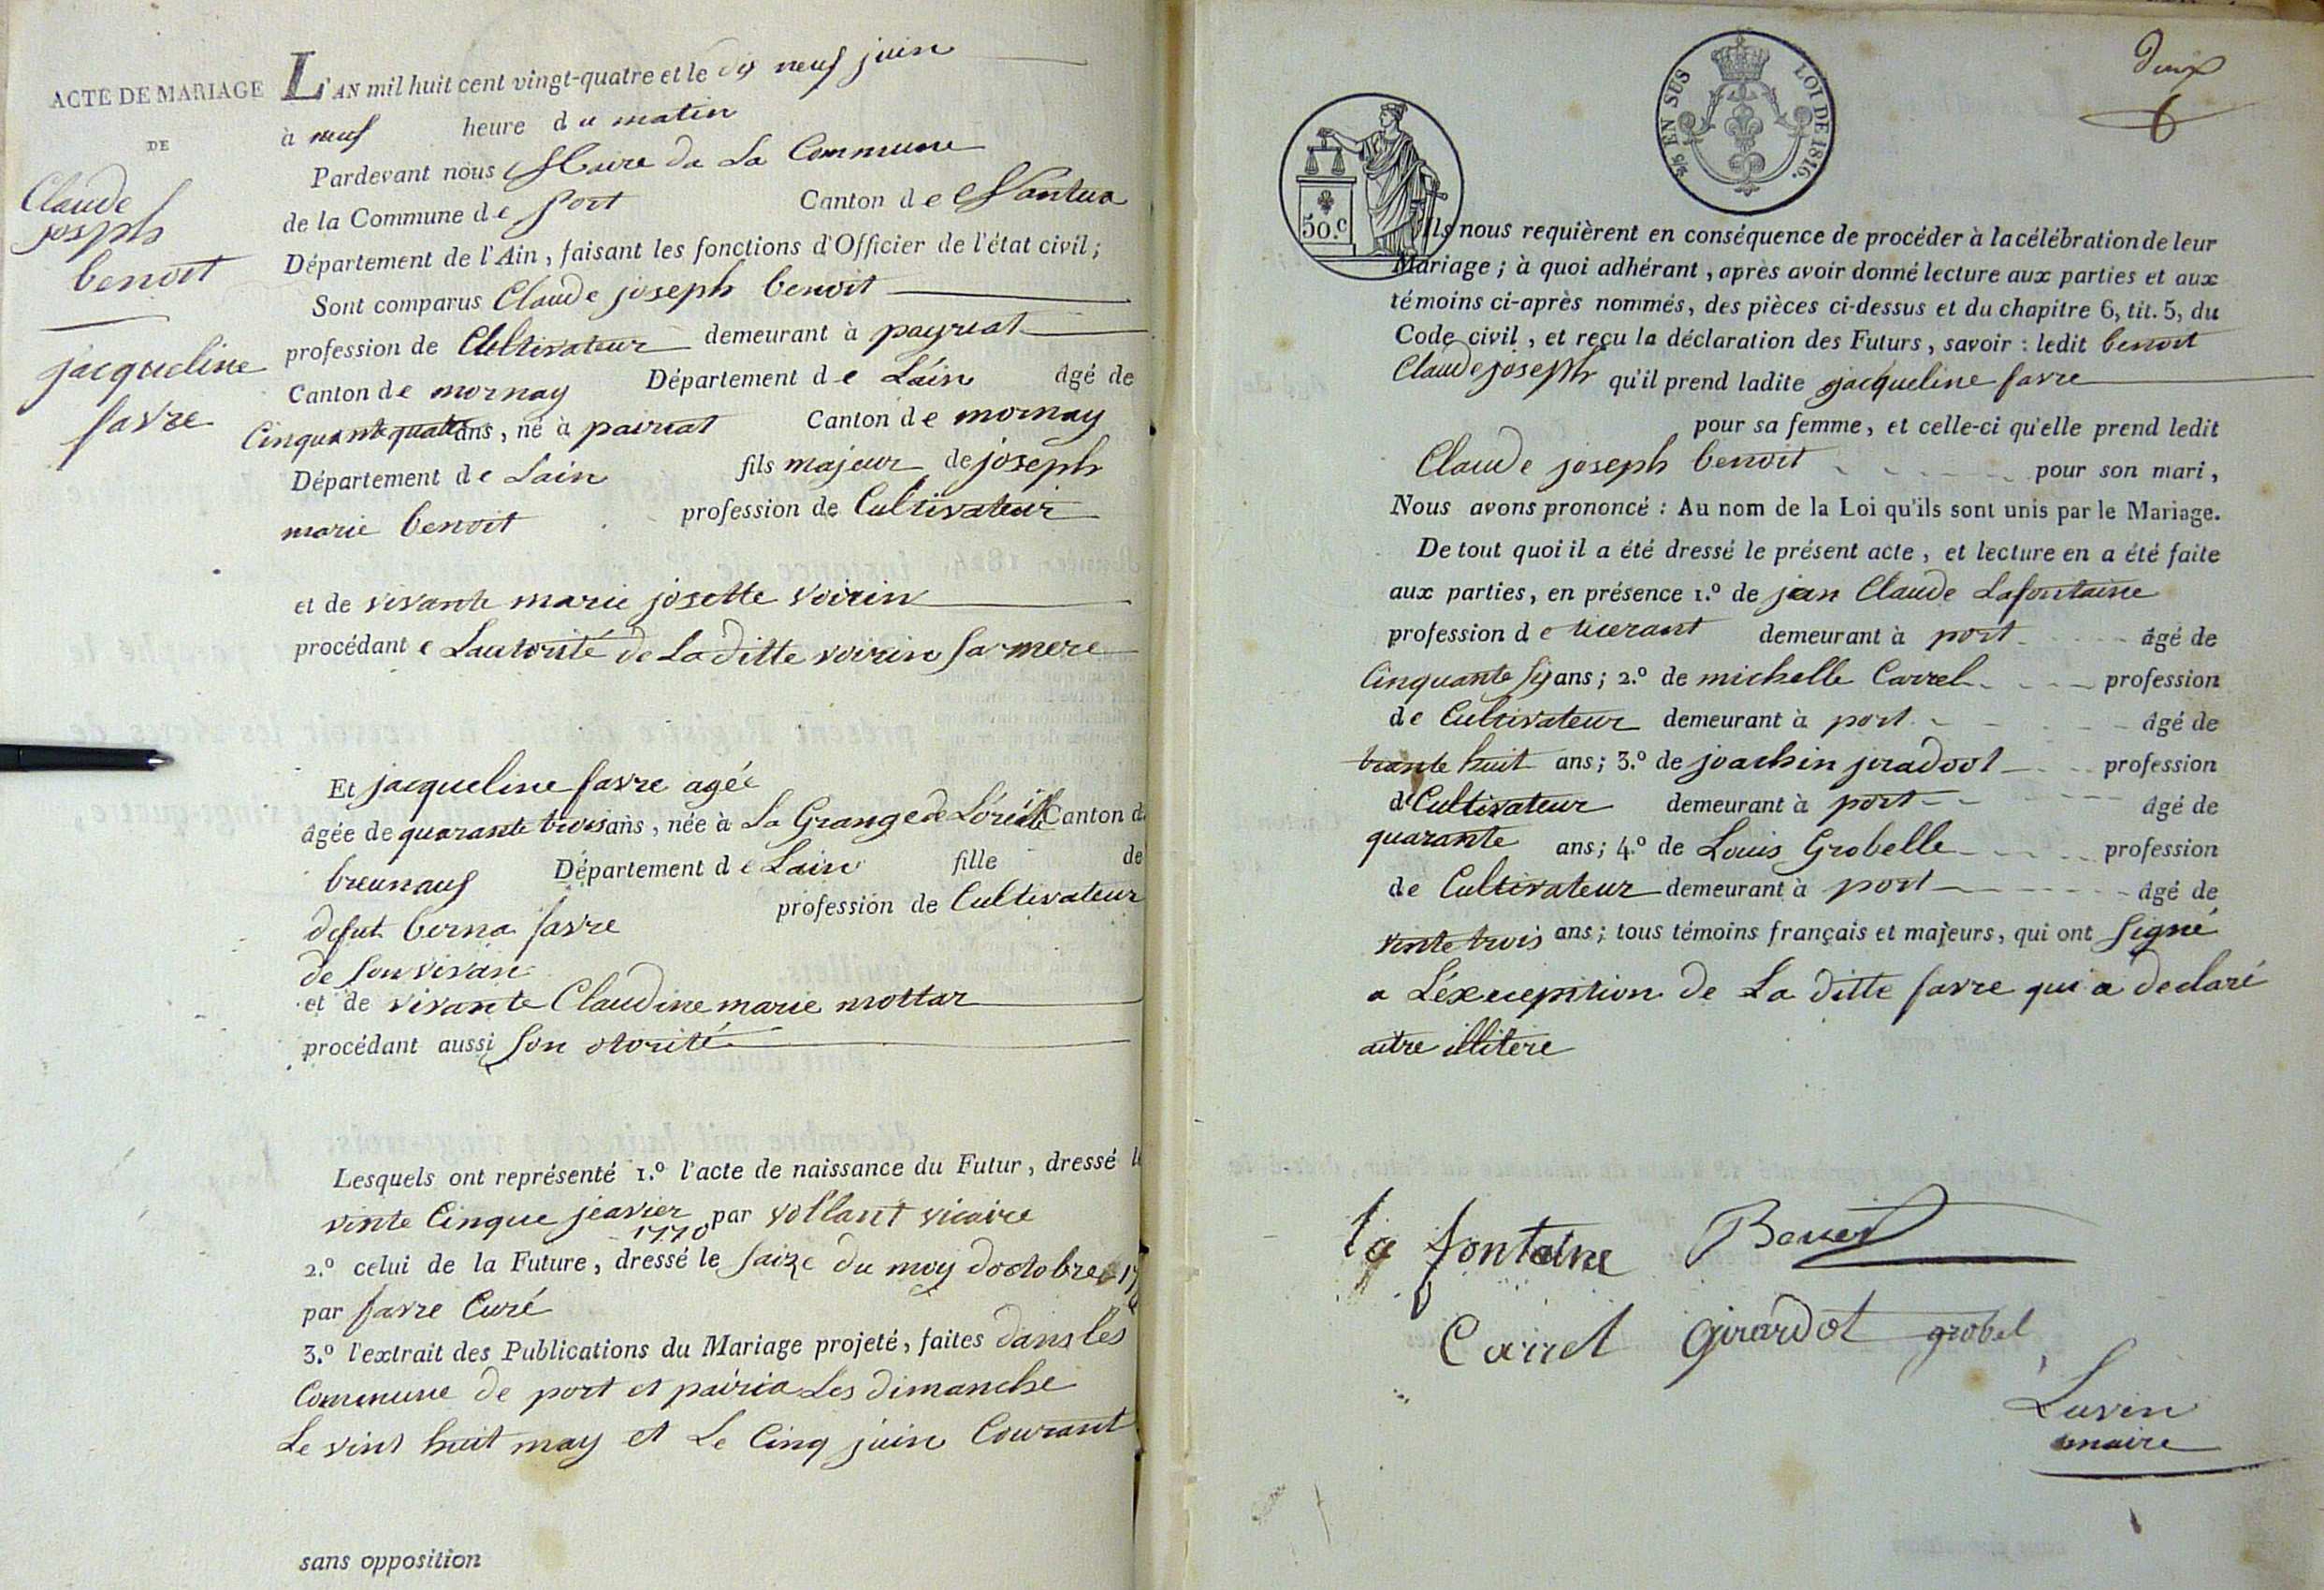 ACTE DE MARIAGE
DE
Claude
joseph
benoit
jacqueline
favre
L'AN mil huit cent vingt-quatre et le dix neuf juin
à neuf heure du matin
Pardevant nous Maire de La Commune
de la Commune de Port Canton de Nantua
Département de l'Ain, faisant les fonctions d'Officier de l'état civil;
Sont comparus Claude joseph benoit
profession de Cultivateur demeurant à payriat
Canton de mornay Département de L'ain âgé de
Cinquante quatre ans, né à pairiat Canton de mornay
Département de Lain fils majeur de joseph
marie benoit profession de Cultivateur
et de vivante marie josette voirin
procédant e Lautorité de La ditte voirin sa mere
Et jacqueline favre agée
âgée de quarante trois ans, née à La Grange de Canton de
breunauf Département de Lain fille de
defut berna favre profession de Cultivateur
de son vivan
et de vivante Claudine marie mottar
procédant aussi son otorité
Lesquels ont représenté 1.º l'acte de naissance du Futur, dressé le
vinte Cinque jeavier par vollant vicaire
1770
2.º celui de la Future, dressé le saize du moy doctobre 17
par favre Curé
3.º l'extrait des Publications du Mariage projeté, faites dans les
Commune de port et pairia Les dimanche
Le vint huit may et Le Cinq juin Courant
sans opposition
deux
6
50.c
2/5 EN SUS LOI DE 1816.
Ils nous requièrent en conséquence de procéder à la célébration de leur
Mariage; à quoi adhérant, après avoir donné lecture aux parties et aux
témoins ci-après nommés, des pièces ci-dessus et du chapitre 6, tit. 5, du
Code civil, et reçu la déclaration des Futurs, savoir: ledit benoit
Claude joseph qu'il prend ladite jacqueline favre
pour sa femme, et celle-ci qu'elle prend ledit
Claude joseph benoit pour son mari,
Nous avons prononcé: Au nom de la Loi qu'ils sont unis par le Mariage.
De tout quoi il a été dressé le présent acte, et lecture en a été faite
aux parties, en présence 1.º de jean Claude Lafontaine
profession de demeurant à port âgé de
Cinquante six ans; 2.º de michelle Carrel profession
de Cultivateur demeurant à port âgé de
trante huit ans; 3.º de joachin jiradoot profession
de Cultivateur demeurant à port âgé de
quarante ans; 4.º de Louis Grobelle profession
de Cultivateur demeurant à port âgé de
vinte trois ans; tous témoins français et majeurs, qui ont signé
a L'éxeception de La ditte favre qui a declaré
aitre illitere
la fontaine Benoit
Carrel girardot grobel
Luvin
maire